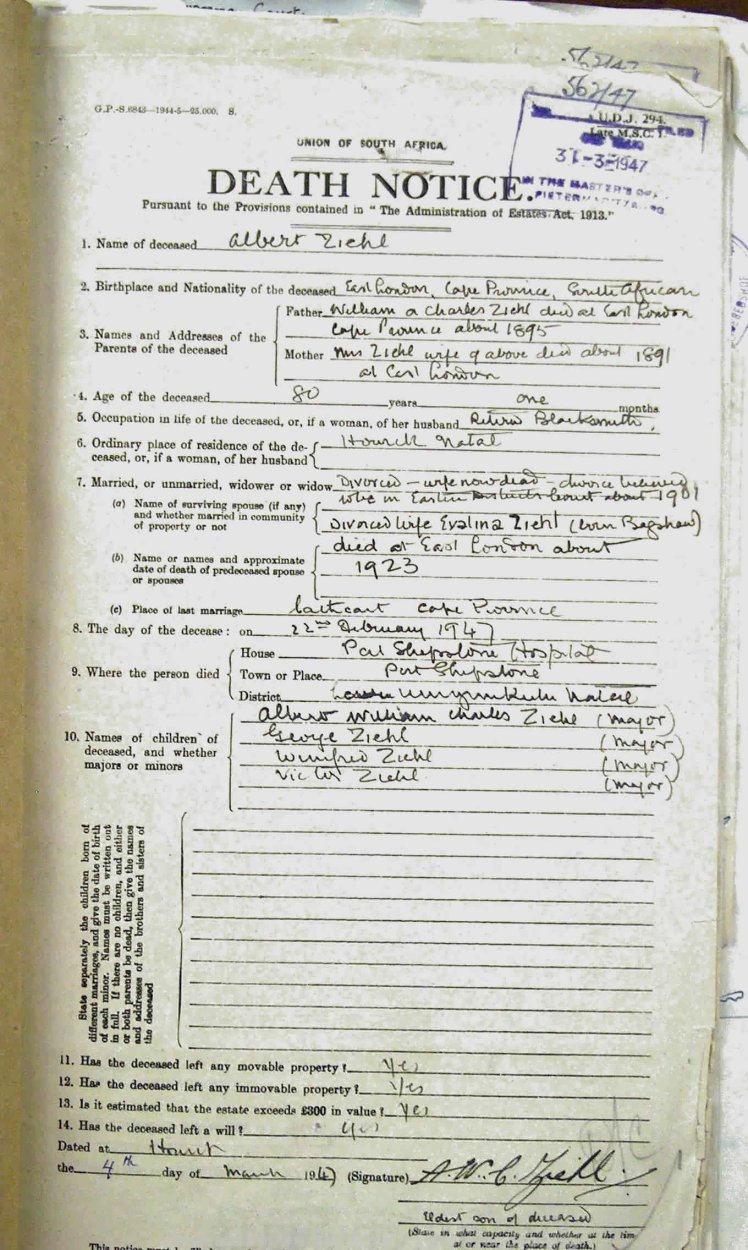 562/47
562/47
G.P.-S.6843—1944-5—25,000. S.
U.D.J. 294.
Late M.S.C. 1.
FILED
31-3-1947
IN THE MASTER'S OF
UNION OF SOUTH AFRICA.
DEATH NOTICE.
Pursuant to the Provisions contained in "The Administration of Estates Act, 1913."
1. Name of deceased Albert Ziehl
2. Birthplace and Nationality of the deceased East London, Cape Province, South African
3. Names and Addresses of the Parents of the deceased
Father William Charles Ziehl died at East London
Cape Province about 1895
Mother Mrs Ziehl wife of above died about 1891
at East London
4. Age of the deceased 80 years one months
5. Occupation in life of the deceased, or, if a woman, of her husband Retired Blacksmith.
6. Ordinary place of residence of the deceased, or, if a woman, of her husband Howick Natal
7. Married, or unmarried, widower or widow Divorced – wife now dead – divorce believed
in Eastern Districts Court about 1901
(a) Name of surviving spouse (if any) and whether married in community of property or not
Divorced wife Evalina Ziehl (born Bagshaw)
(b) Name or names and approximate date of death of predeceased spouse or spouses
died at East London about
1923
(c) Place of last marriage Cathcart Cape Province
8. The day of the decease: on 22nd February 1947
9. Where the person died
House Port Shepstone Hospital
Town or Place Port Shepstone
District Umzimkulu Natal
10. Names of children of deceased, and whether majors or minors
Albert William Charles Ziehl (major)
George Ziehl (major)
Winifred Ziehl (major)
Victor Ziehl (major)
State separately the children born of
different marriages, and give the date of birth
of each minor. Names must be written out
in full. If there are no children, and either
or both parents be dead, then give the names
and addresses of the brothers and sisters of
the deceased
11. Has the deceased left any movable property? Yes
12. Has the deceased left any immovable property? Yes
13. Is it estimated that the estate exceeds £300 in value? Yes
14. Has the deceased left a will? Yes
Dated at Howick
the 4th day of March 1947 (Signature) A.W.C. Ziehl
Eldest son of deceased
(State in what capacity and whether at the tim
at or near the place of death.)